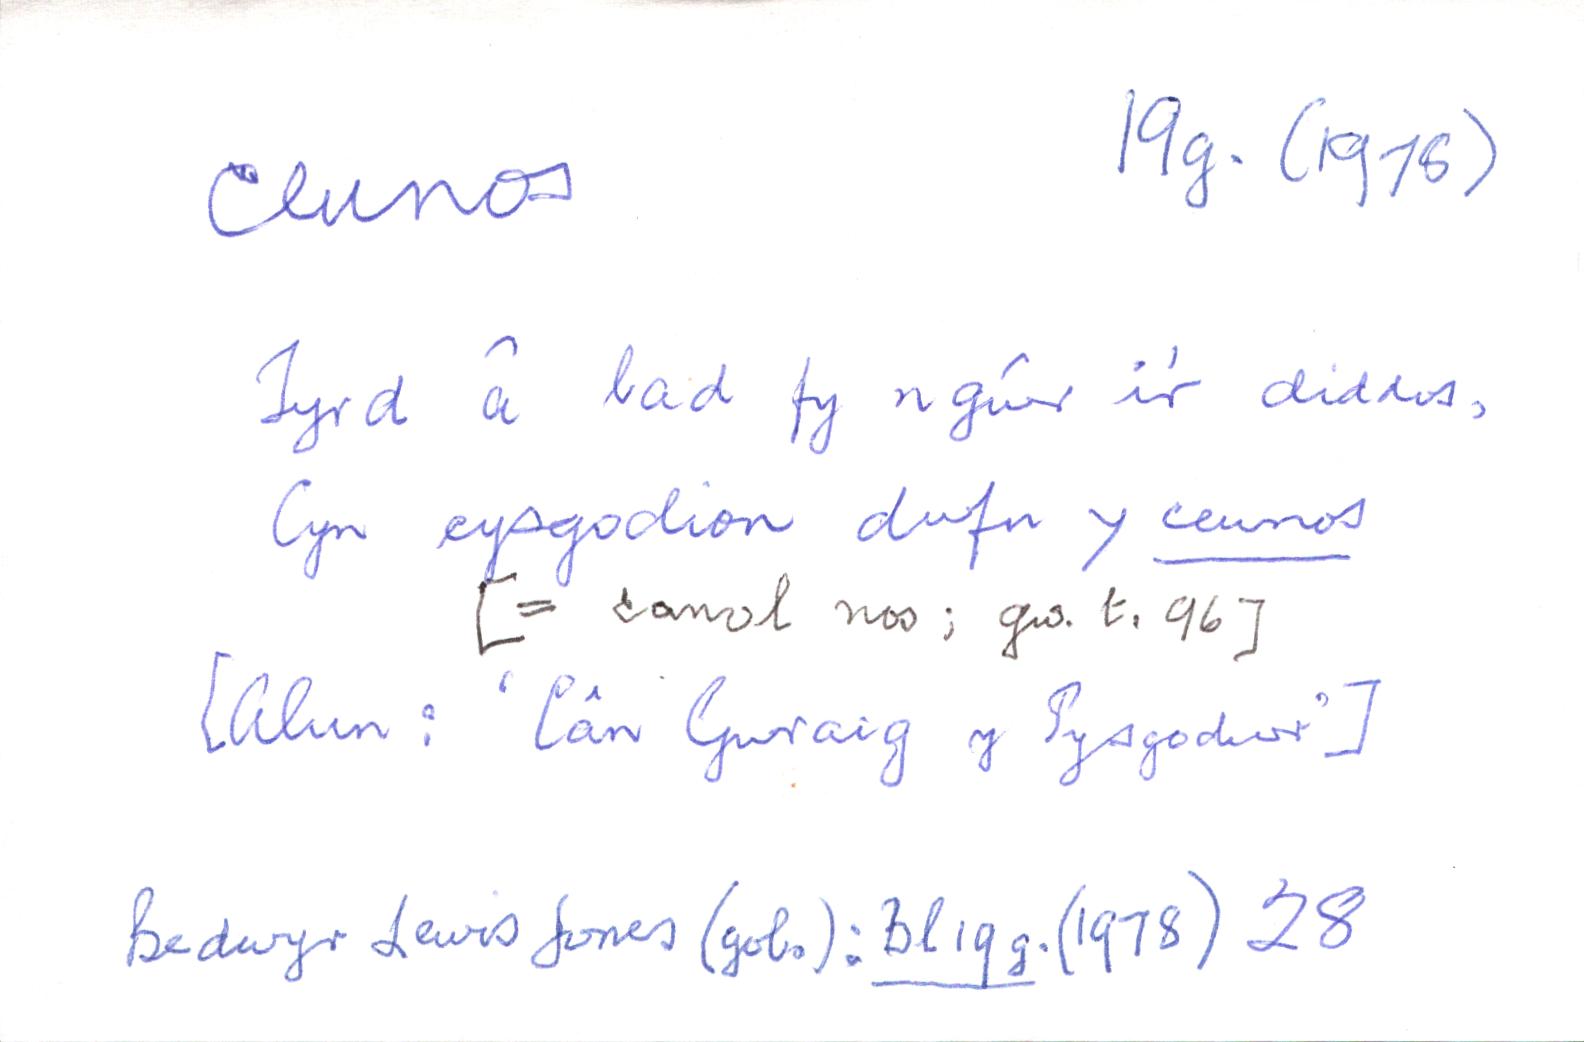 ceunos
19g. (1978)
Tyrd â bad fy ngŵr i'r diddos,
Cyn cysgodion dufn y ceunos
[= canol nos; gw. t. 96]
[Alun: 'Cân Gwraig y Pysgodwr']
Bedwyr Lewis Jones (gol.): Bl 19 g. (1978) 28